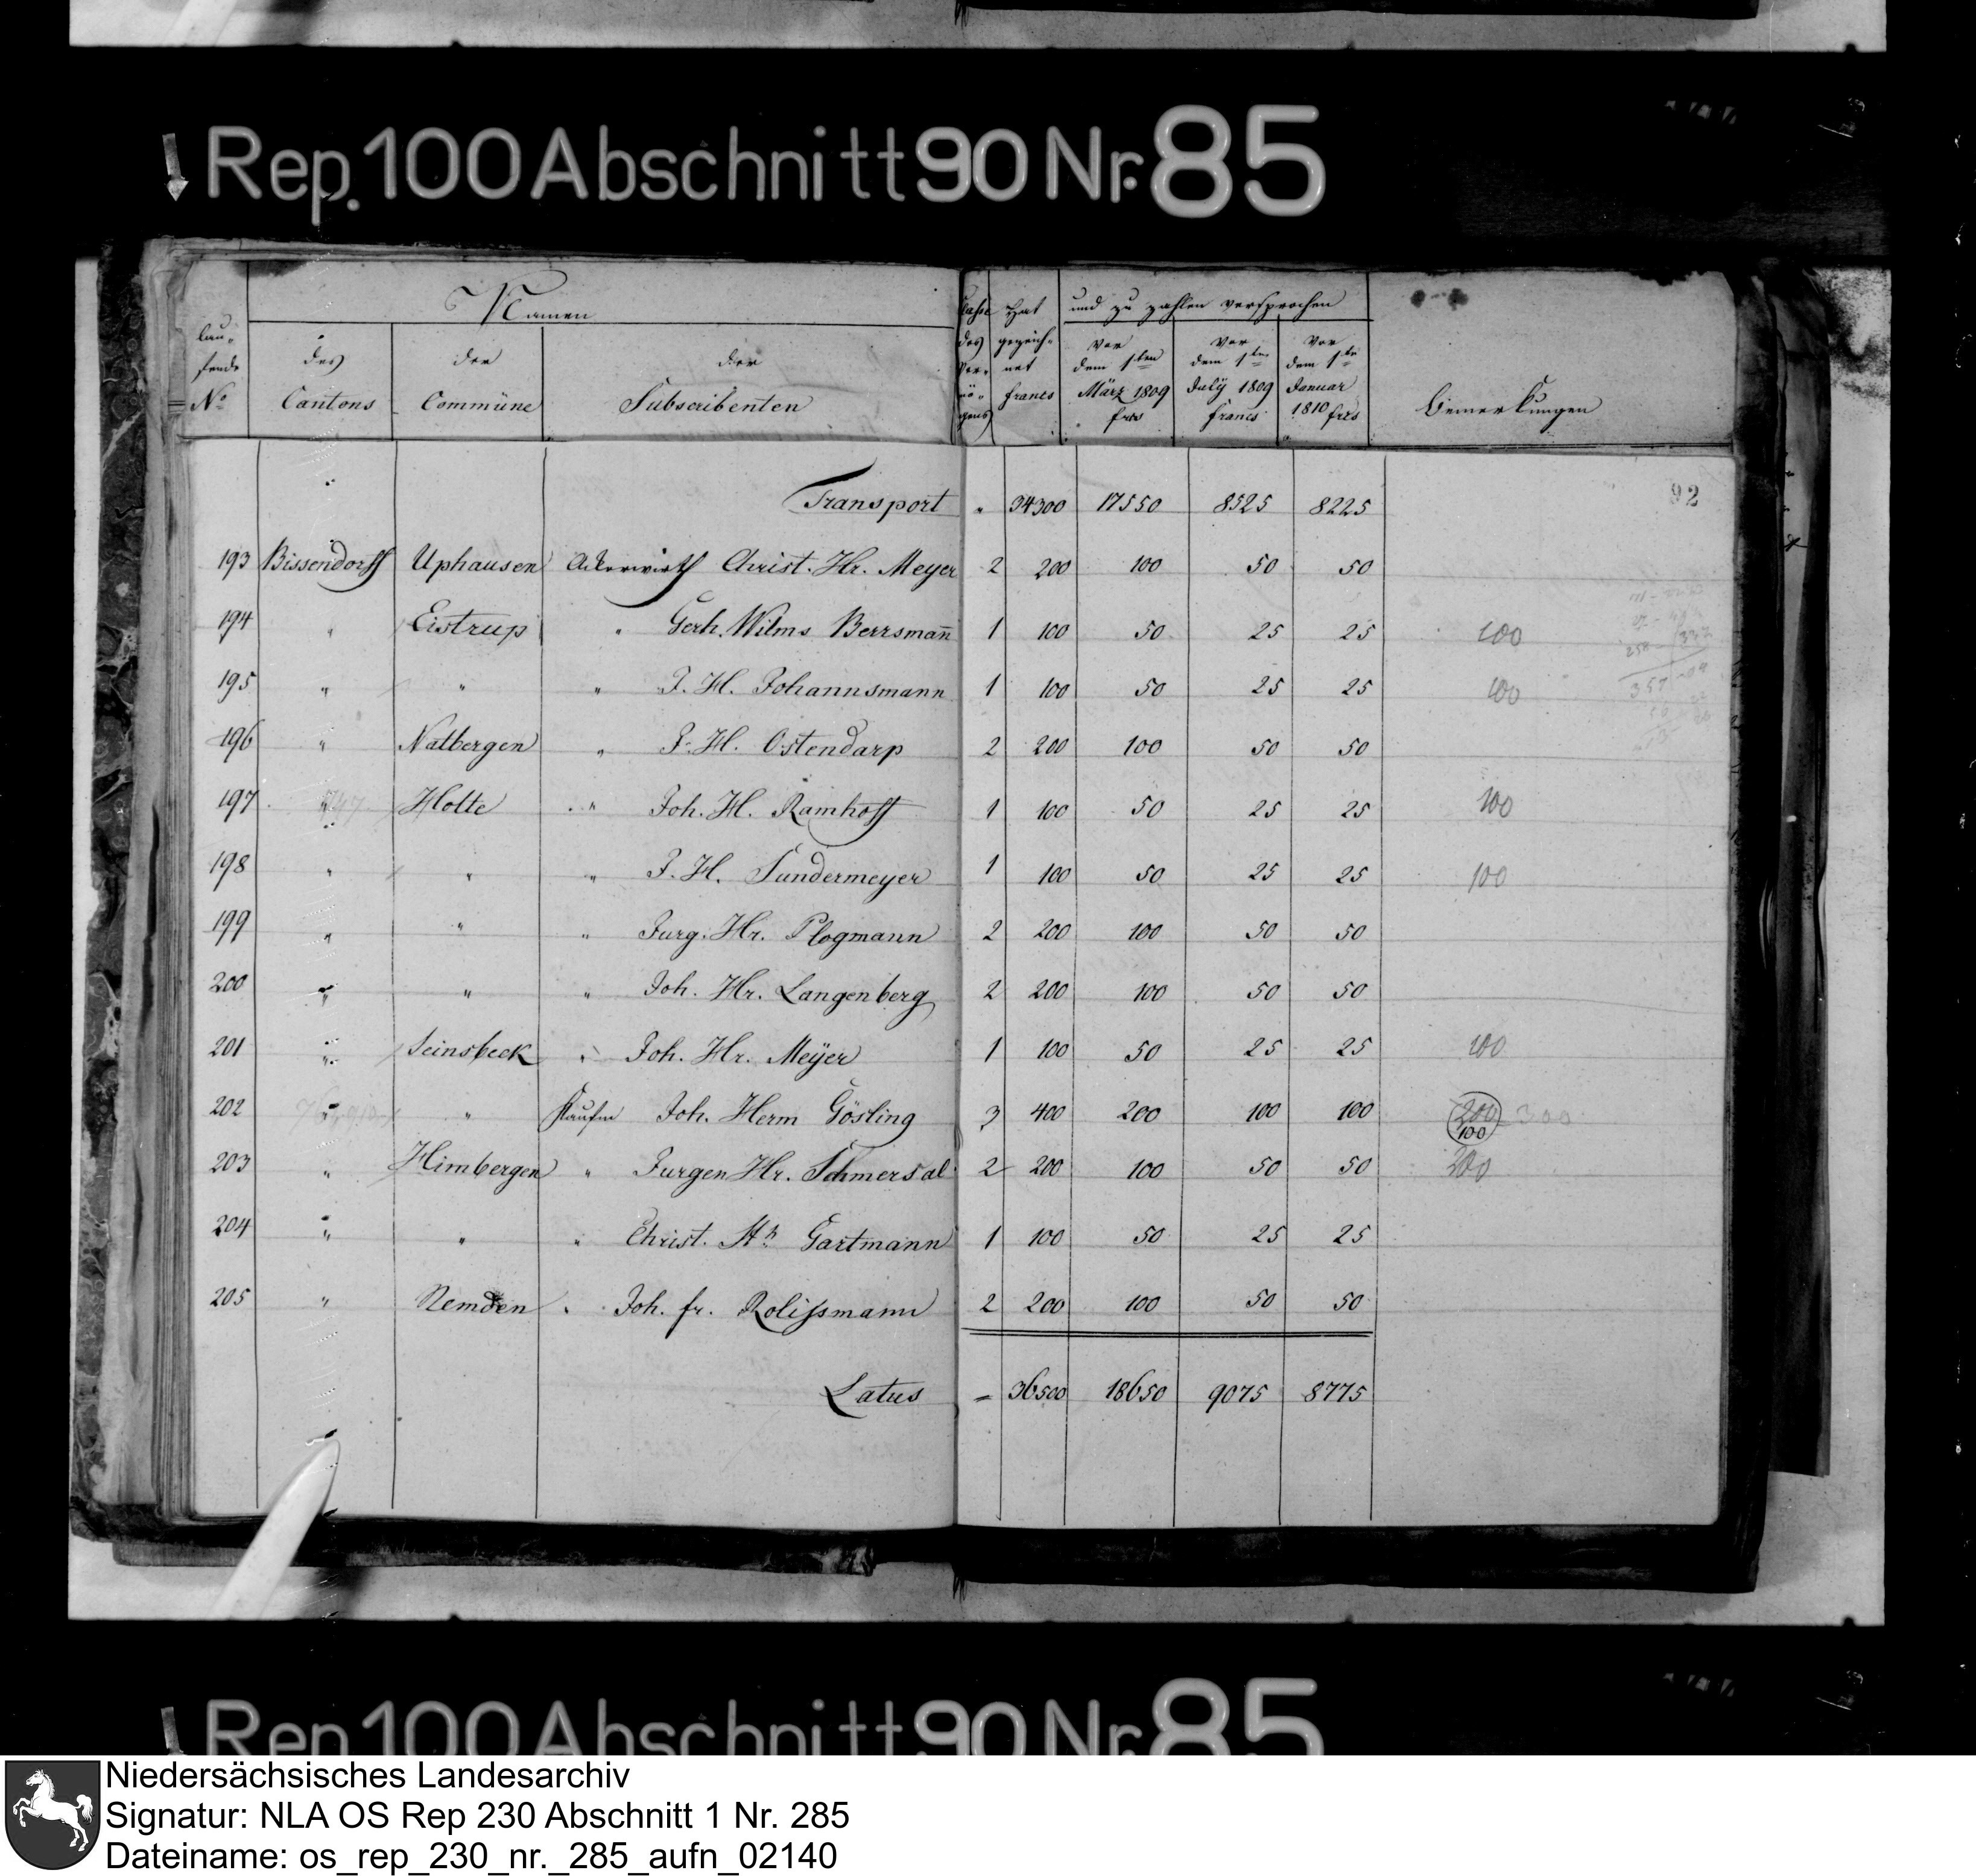 Rep. 100 Abschnitt 90 Nr. 85
Namen
Hat und zu zahlen versprochen
Lau-
fende
No
des
Cantons
der
Commüne
der
Subscribenten
Classe
des
Ver-
mö-
gens
gezeich-
net
francs
vor
dem 1ten
März 1809
frcs
vor
dem 1ten
July 1809
francs
vor
dem 1te
Januar
1810 frcs
Bemerkungen
92
Transport " 34300 17550 8525 8225
193 Bissendorff Uphausen Ackerwirth Christ. Hr. Meyer 2 200 100 50 50
194 " Eistrup " Gerh. Wilms Berrsmann̄ 1 100 50 25 25 100
195 " " " J. H. Johannsmann 1 100 50 25 25 100
196 " Natbergen " J. H. Ostendarp 2 200 100 50 50
197 " Holte " Joh. H. Ramhoff 1 100 50 25 25 100
198 " " " J. H. Sundermeyer 1 100 50 25 25 100
199 " " " Jurg. Hr. Plogmann 2 200 100 50 50
200 " " " Joh. Hr. Langenberg 2 200 100 50 50
201 " Jeinsbeck " Joh. Hr. Meÿer 1 100 50 25 25 100
202 " " Kaufm Joh. Herm Gösling 3 400 200 100 100 200 300
100
203 " Himbergen " Jurgen Hr. Schmersal 2 200 100 50 50 200
204 " " " Christ. Hr. Gartmann 1 100 50 25 25
205 " Nemden " Joh. fr. Rolissmann 2 200 100 50 50
Latus = 36500 18650 9075 8775
Rep. 100 Abschnitt 90 Nr. 85
Niedersächsisches Landesarchiv
Signatur: NLA OS Rep 230 Abschnitt 1 Nr. 285
Dateiname: os_rep_230_nr._285_aufn_02140